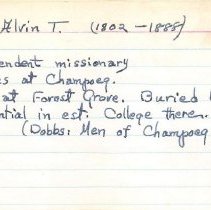 Alvin T. (1802-1888)
endent missionary
es at Champoeg.
at Forest Grove. Buried
ntial in est. College there.
(Dobbs: Men of Champoeg